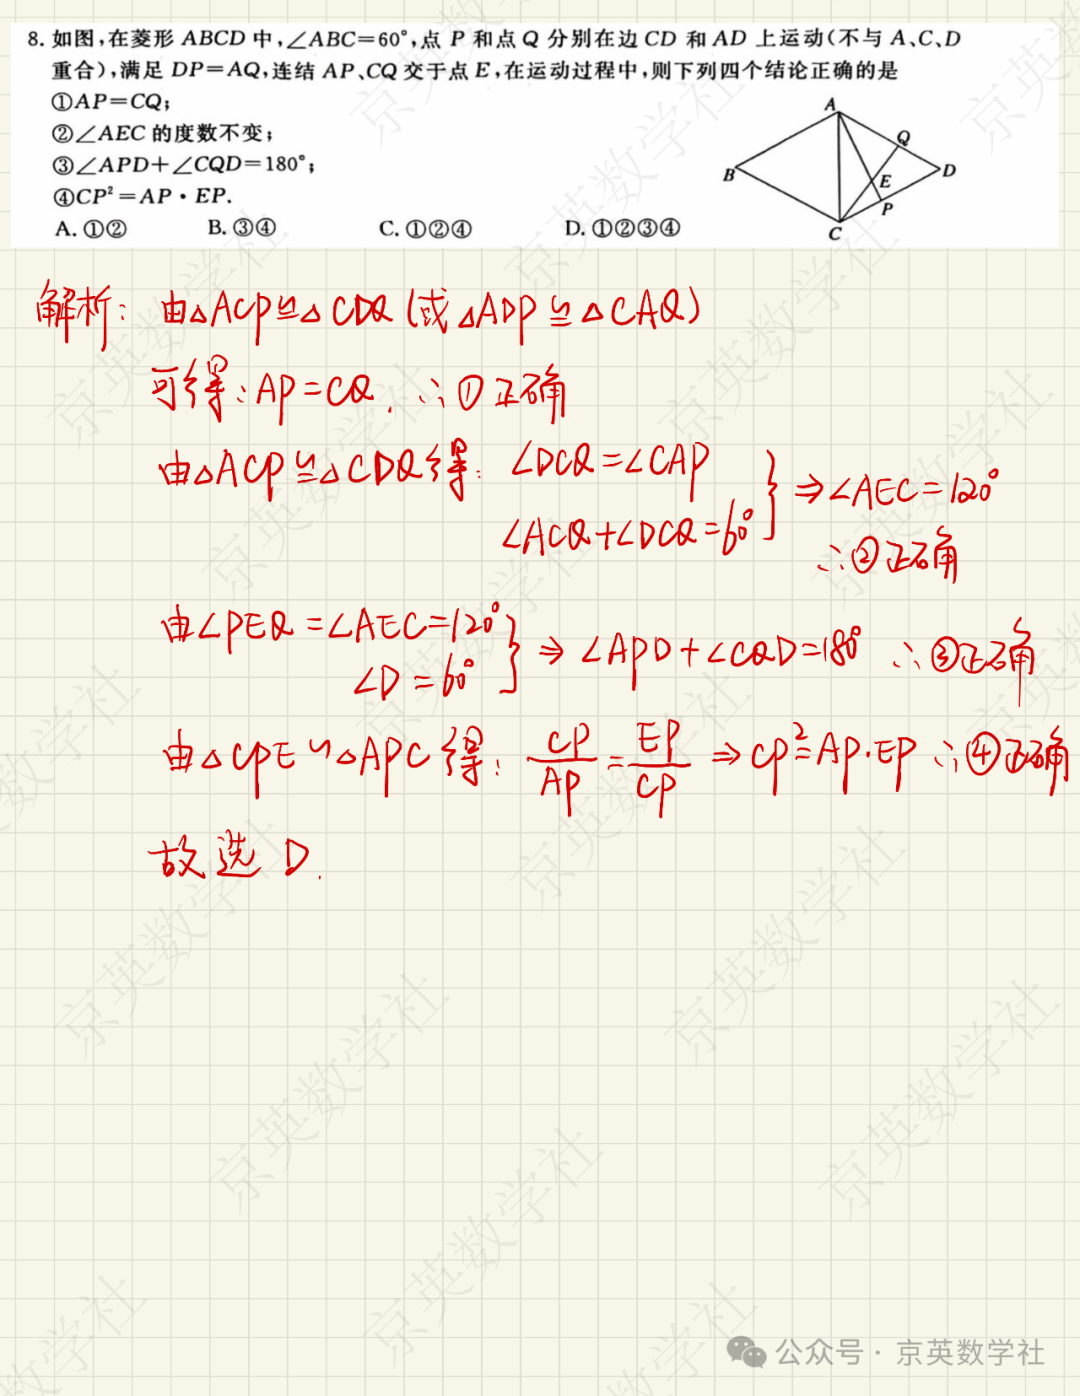 8. 如图,在菱形 ABCD 中,∠ABC=60°,点 P 和点 Q 分别在边 CD 和 AD 上运动(不与 A、C、D
重合),满足 DP=AQ,连结 AP、CQ 交于点 E,在运动过程中,则下列四个结论正确的是
①AP=CQ;
②∠AEC 的度数不变;
③∠APD+∠CQD=180°;
④CP²=AP·EP.
A. ①② B. ③④ C. ①②④ D. ①②③④
A
Q
B
D
E
P
C
解析: 由△ACP≌△CDQ (或△ADP≌△CAQ)
可得: AP=CQ. ∴①正确
由△ACP≌△CDQ得: ∠DCQ=∠CAP
∠ACQ+∠DCQ=60° } ⇒∠AEC=120°
∴②正确
由∠PEQ=∠AEC=120°
∠D=60° } ⇒ ∠APD+∠CQD=180° ∴③正确
由△CPE∽△APC得: CP/AP=EP/CP ⇒ CP²=AP·EP ∴④正确
故选 D.
京英数学社
公众号·京英数学社